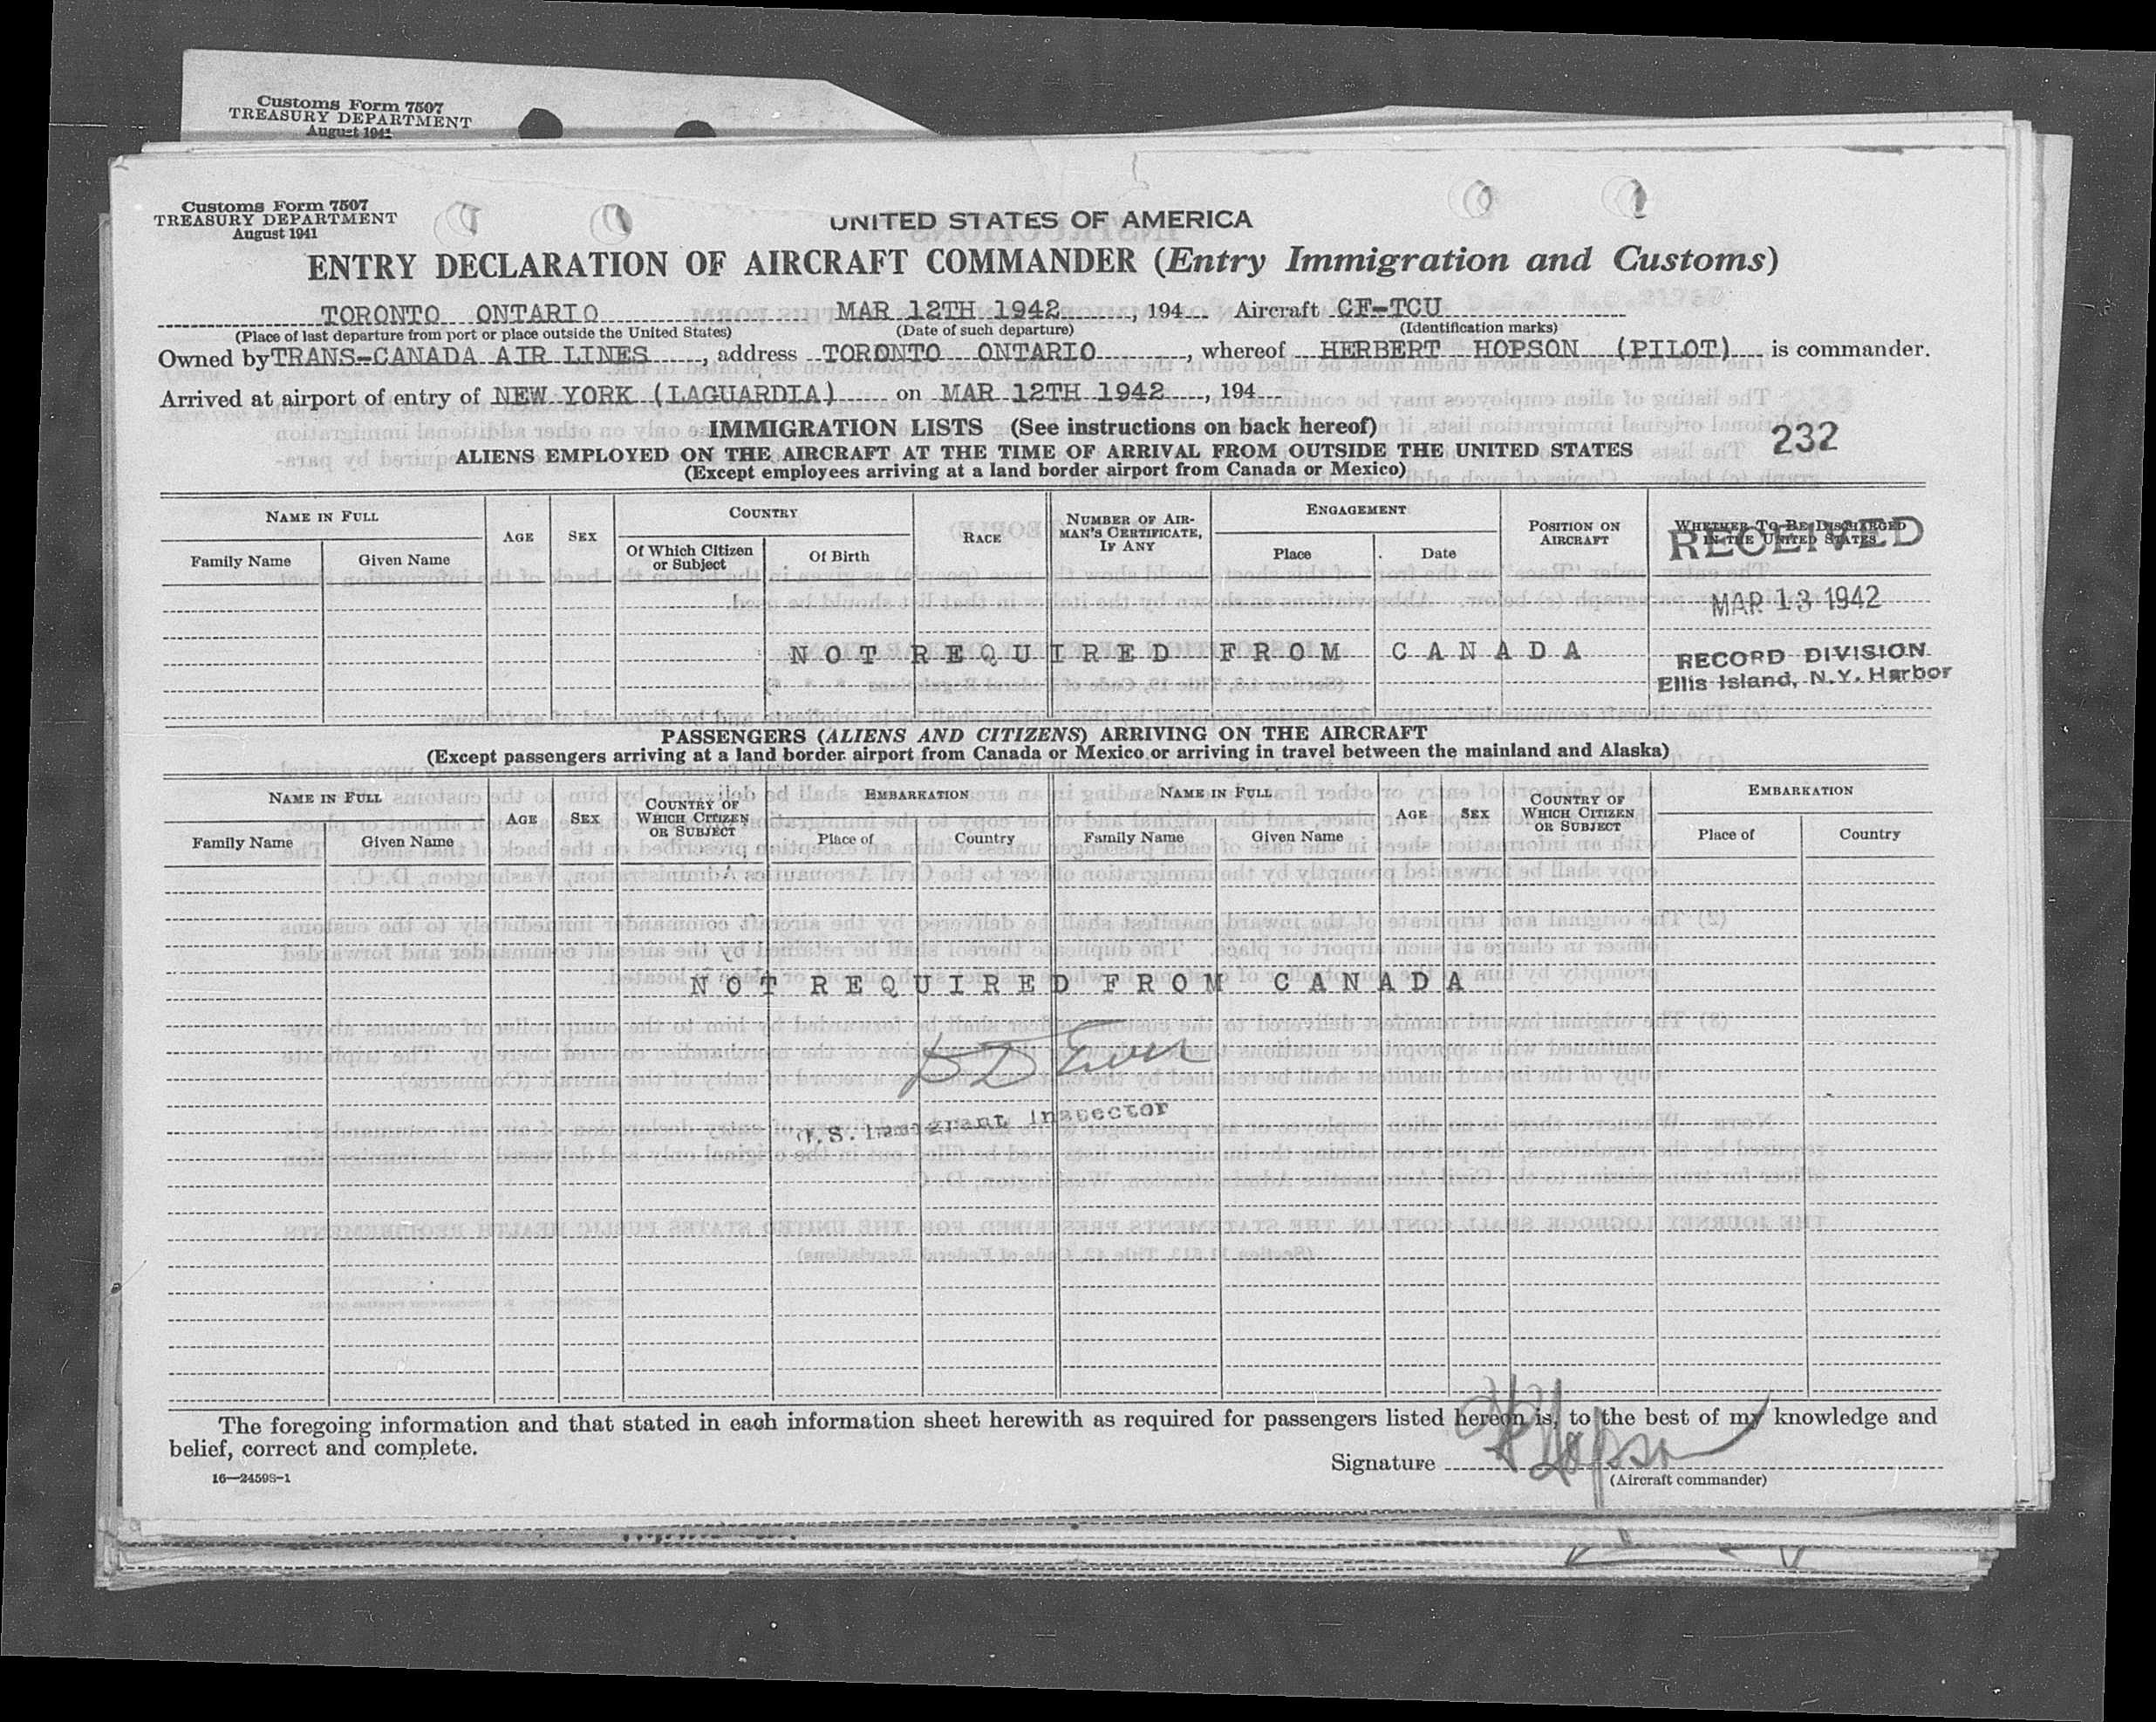 Customs Form 7507
TREASURY DEPARTMENT
August 1941
Customs Form 7507
TREASURY DEPARTMENT
August 1941
UNITED STATES OF AMERICA
ENTRY DECLARATION OF AIRCRAFT COMMANDER (Entry Immigration and Customs)
TORONTO ONTARIO MAR 12TH 1942, 194 Aircraft CF-TCU
(Place of last departure from port or place outside the United States) (Date of such departure) (Identification marks)
Owned by TRANS-CANADA AIR LINES, address TORONTO ONTARIO, whereof HERBERT HOPSON (PILOT) is commander.
Arrived at airport of entry of NEW YORK (LAGUARDIA) on MAR 12TH 1942, 194
IMMIGRATION LISTS (See instructions on back hereof)
232
ALIENS EMPLOYED ON THE AIRCRAFT AT THE TIME OF ARRIVAL FROM OUTSIDE THE UNITED STATES
(Except employees arriving at a land border airport from Canada or Mexico)
NAME IN FULL AGE SEX COUNTRY RACE NUMBER OF AIRMAN'S CERTIFICATE, IF ANY ENGAGEMENT POSITION ON AIRCRAFT WHETHER TO BE DISCHARGED IN THE UNITED STATES
Family Name Given Name Of Which Citizen or Subject Of Birth Place Date
RECEIVED
MAR 13 1942
NOT REQUIRED FROM CANADA
RECORD DIVISION
Ellis Island, N.Y. Harbor
PASSENGERS (ALIENS AND CITIZENS) ARRIVING ON THE AIRCRAFT
(Except passengers arriving at a land border airport from Canada or Mexico or arriving in travel between the mainland and Alaska)
NAME IN FULL AGE SEX COUNTRY OF WHICH CITIZEN OR SUBJECT EMBARKATION NAME IN FULL AGE SEX COUNTRY OF WHICH CITIZEN OR SUBJECT EMBARKATION
Family Name Given Name Place of Country Family Name Given Name Place of Country
NOT REQUIRED FROM CANADA
U.S. Immigrant Inspector
The foregoing information and that stated in each information sheet herewith as required for passengers listed hereon is, to the best of my knowledge and
belief, correct and complete.
Signature H Hopson
(Aircraft commander)
16—24598-1